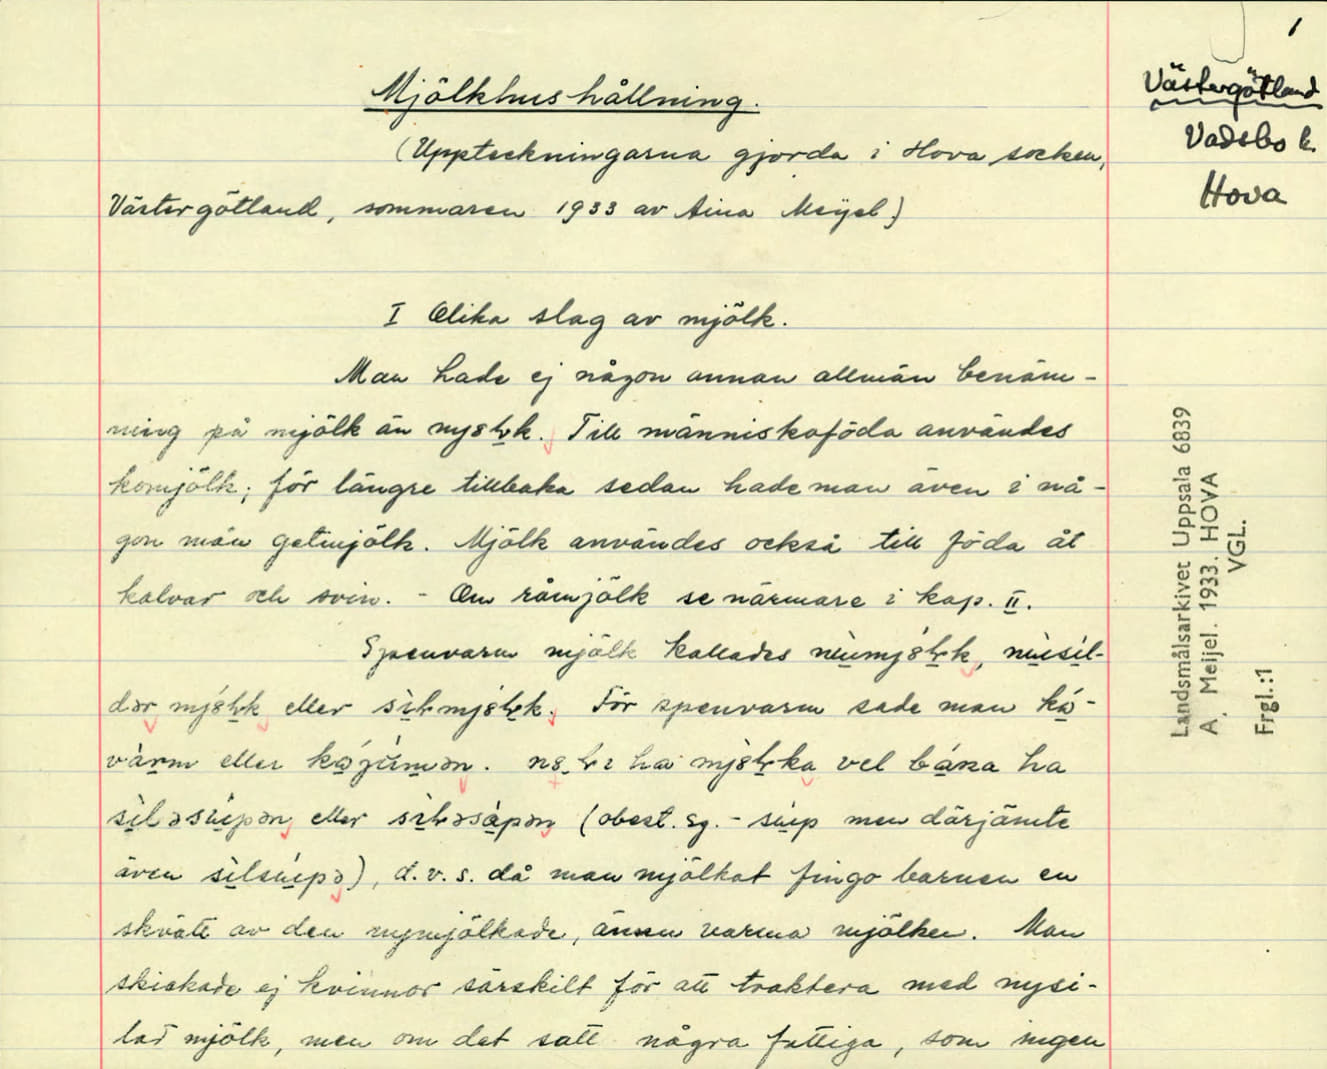 1
Västergötland
Vadsbo h.
Hova
Mjölkhushållning.
(Uppteckningarna gjorda i Hova socken,
Västergötland, sommaren 1933 av Aina Meijel.)
I Olika slag av mjölk.
Man hade ej någon annan allmän benäm-
ning på mjölk än Till människoföda användes
komjölk; för längre tillbaka sedan hade man även i nå-
gon mån getmjölk. Mjölk användes också till föda åt
kalvar och svin. - Om råmjölk se närmare i kap. II.
Spenvarm mjölk kallades
eller För spenvarm sade man
eller vel ha
eller (obest. sg. - men därjämte
även ), d.v.s. då man mjölkat fingo barnen en
skvätt av den nymjölkade, ännu varma mjölken. Man
skickade ej kvinnor särskilt för att traktera med nysi-
lad mjölk, men om det satt några fattiga, som ingen
Landsmålsarkivet Uppsala 6839
A. Meijel. 1933. HOVA
VGL.
Frgl.:1